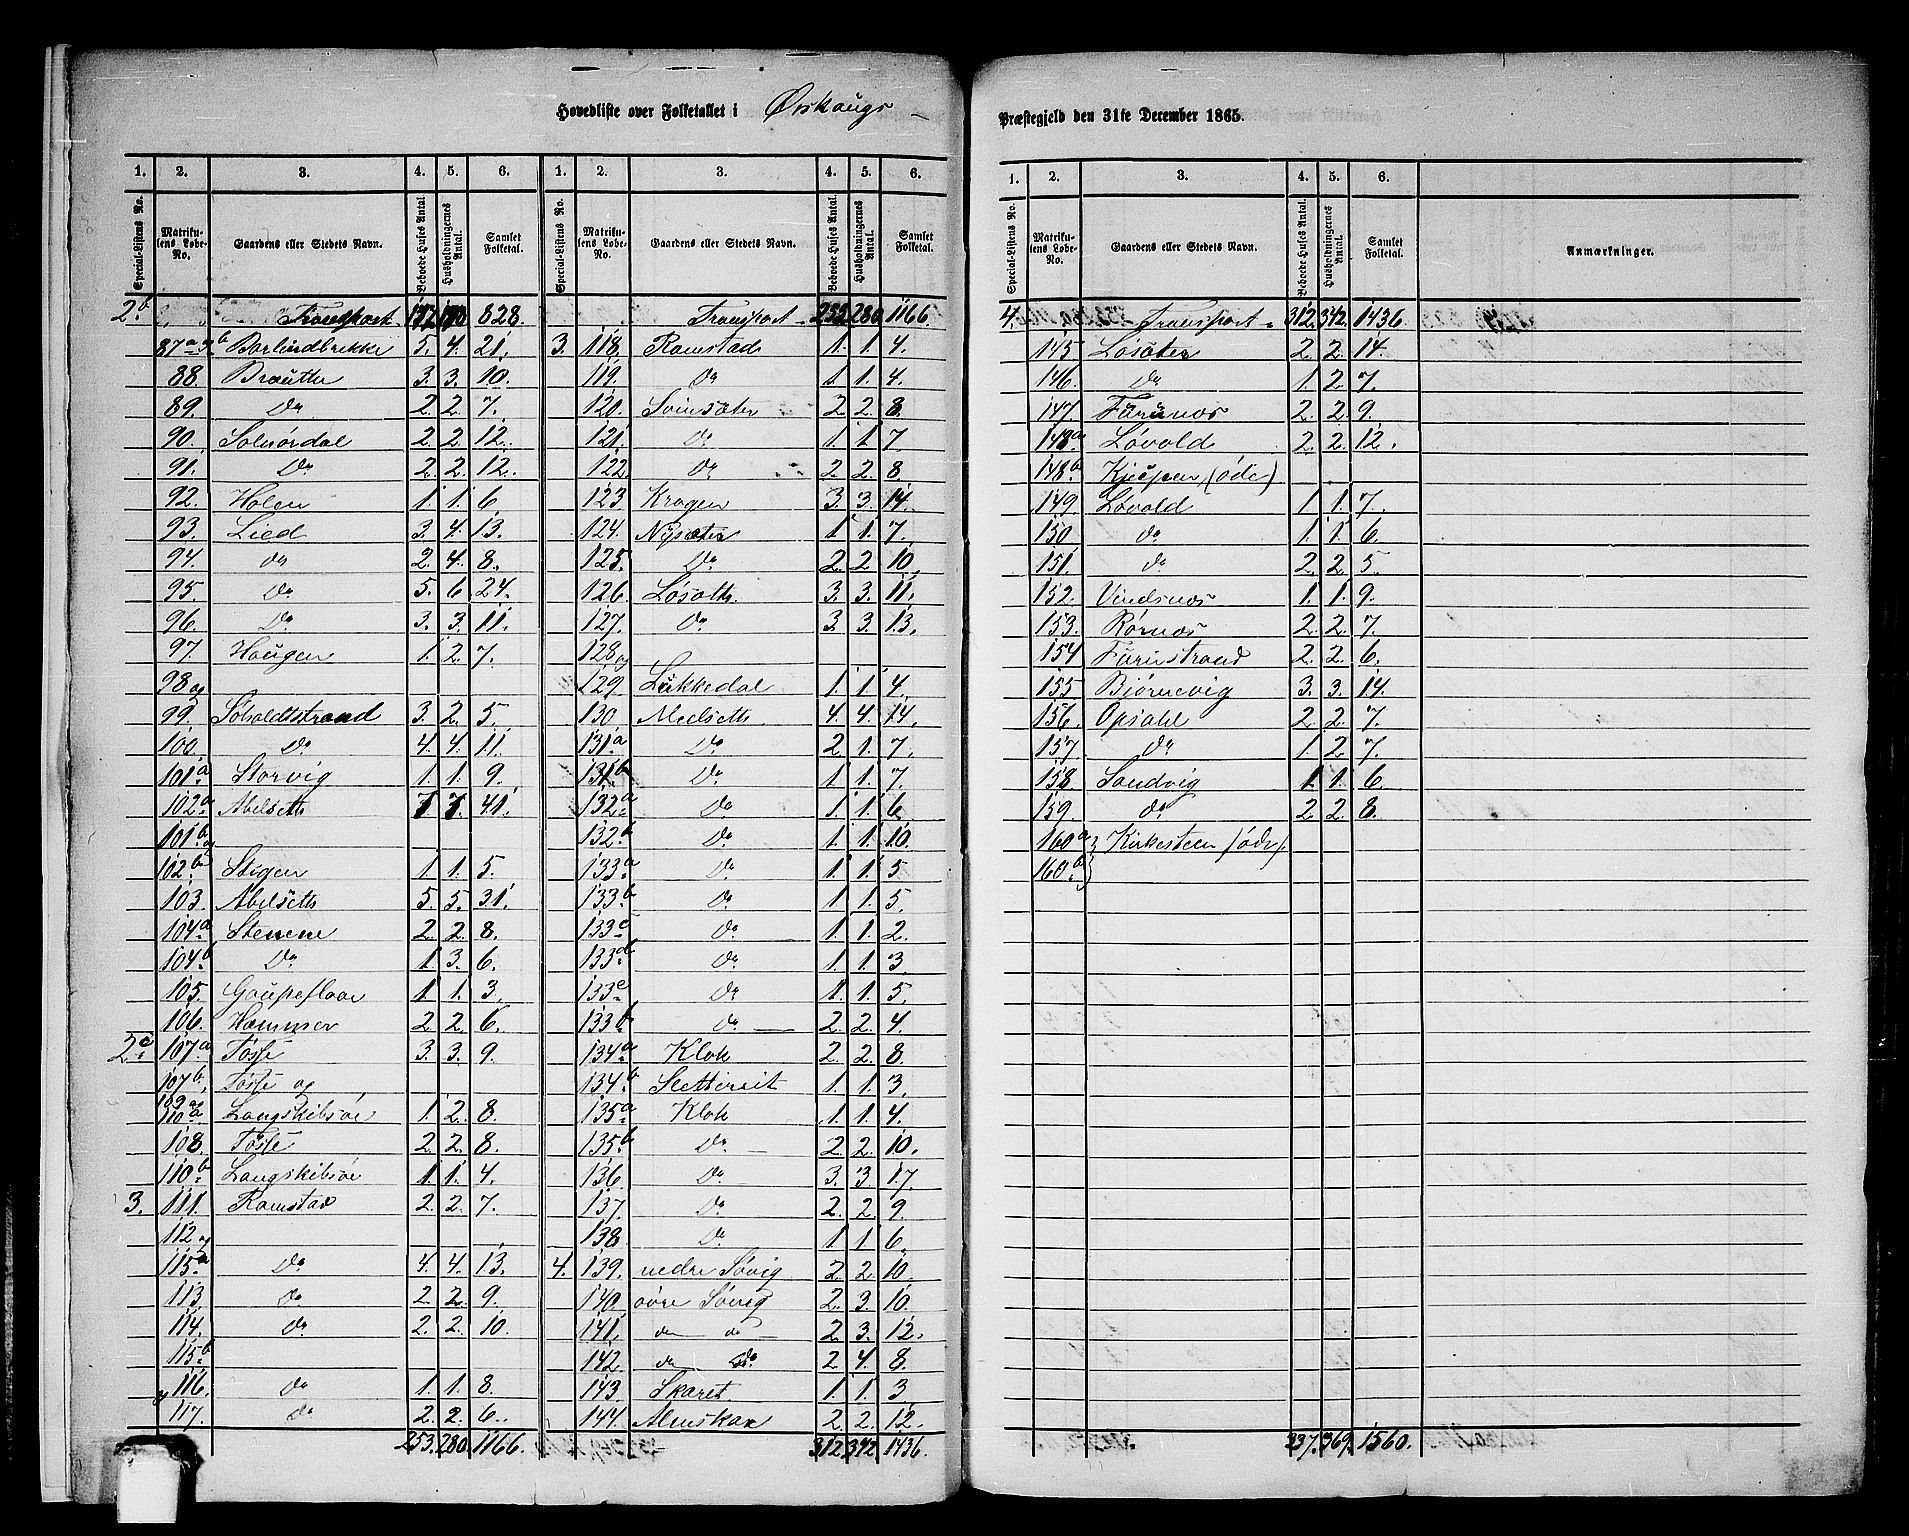 Hovedliste over Folketallet i Ørskougs
Præstegjeld den 31te December 1865.
1. 2. 3. 4. 5. 6. 1. 2. 3. 4. 5. 6.
Special-Listens No. Matrikulens Løbe-No. Gaardens eller Stedets Navn. Beboede Huses Antal. Husholdningernes Antal. Samlet Folketal. Special-Listens No. Matrikulens Løbe-No. Gaardens eller Stedets Navn. Beboede Huses Antal. Husholdningernes Antal. Samlet Folketal.
2b Transport 828.
87a-b Borlindbrekke 5. 4. 21.
88. Brautte 3. 3. 10.
89. Do 2. 2. 7.
90. Solnørdal 2. 2. 12.
91. Do 2. 2. 12.
92. Holen 1. 1. 6
93. Lied 3. 4. 13.
94. do 2. 4. 8.
95. Do 5. 6 24.
96. Do 3. 3. 11.
97. Haugen 1. 2. 7.
98 og
99. Søholdtstrand 3. 2. 5.
100. Do 4. 4. 11.
101a Storvig 1. 1. 9.
102a Abelseth 7. 7. 41.
101b og
102b Stigen 1. 1. 5.
103. Abelseth 5. 5. 31.
104a Stenene 2. 2. 8.
104b Do 1. 3. 6.
105. Goupefloar 1. 1. 3.
106. Hammer 2. 2. 6.
2c 107a Tøsse 3. 3. 9.
107b Tøsse og
109 og 110a Langskibsøe 1. 2. 8.
108. Tøsse 2. 2. 8.
110b Langskibsøe 1. 1. 4.
3. 111. Ramstad 2. 2. 7.
112 og
115a Do 4. 4. 13.
113. Do 2. 2. 9.
114. Do 2. 2. 10.
115b
116. Do 1. 1. 8.
117. Do 2. 2. 6.
253. 280. 1166.
Transport 280 1166.
3. 118. Ramstad 1. 1. 4.
119. Do 1. 1. 4.
120. Svinsæter 2. 2. 8.
121. Do 1 1 7
122 Do 2 2. 8.
123. Kragen 3. 3. 14.
124. Nysæter 1 1. 7.
125. Do 2. 2 10.
126. Løseth 3. 3. 11.
127. Do 3. 3. 13.
128 og
129. Lukkedal 1. 1. 4.
130. Medseth 4. 4. 14.
131a Do 2. 1. 7.
131b Do 1 1. 7.
132a Do 1 1. 6
132b Do 1. 1. 10.
133a Do 1 1. 5
133b Do 1 1. 5.
133c Do 1. 1. 2.
133d Do 1. 1. 3
133e Do 1. 1. 5.
133f Do 2. 2. 4.
134a Klok 2. 2. 8.
134b Slettereit 1. 1. 3.
135a Klok 1. 1. 4.
135b Do 2. 2. 10.
136 Do 3. 3. 17.
137. Do 2. 2. 9.
138 Do 1 1 6
4. 139. nedre Søvig 2. 2. 10.
140. øvre Søvig 2. 3. 10.
141. do do 2. 3. 12.
142. do do 2. 4. 8.
143. Skaret 1. 1. 3
144. Almskar 2. 2. 12.
312. 342. 1436.
1. 2. 3. 4. 5. 6.
Special-Listens No. Matrikulens Løbe-No. Gaardens eller Stedets Navn. Beboede Huses Antal. Husholdningernes Antal. Samlet Folketal. Anmærkninger.
4. Transport 312. 342. 1436.
145 Løsæter 2. 2. 14.
146. Do 1. 2. 7.
147. Furunæs 2. 2. 9.
148a Løvold 2. 2. 12.
148b Kjeipen (øde)
149. Løvold 1. 1. 7.
150 do 1. 1. 6.
151. do 2. 2. 5.
152. Vindsnæs 1. 1. 9.
153. Rørnæs 2. 2. 7.
154 Furustrand 2. 2. 6.
155 Bjørnevig 3. 3. 14.
156. Opsahl 2. 2. 7.
157. Do 1. 2. 7.
158. Sandvig 1. 1. 6.
159. Do 2. 2. 8.
160a Kirkesteen (øde)
160b
337. 369. 1560.